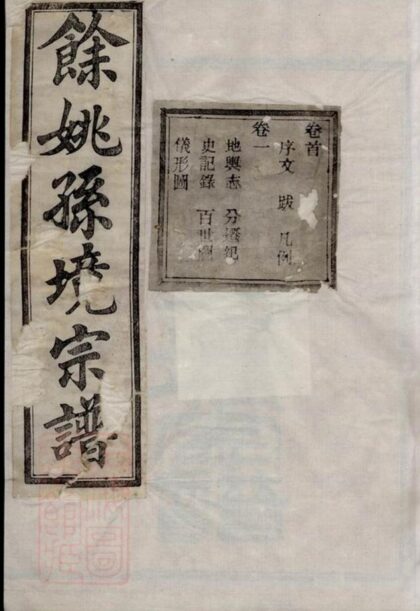 餘姚孫境宗譜
卷首
序文 跋 凡例
卷一
地輿志 分遷紀
史記錄 百世圖
儀形圖